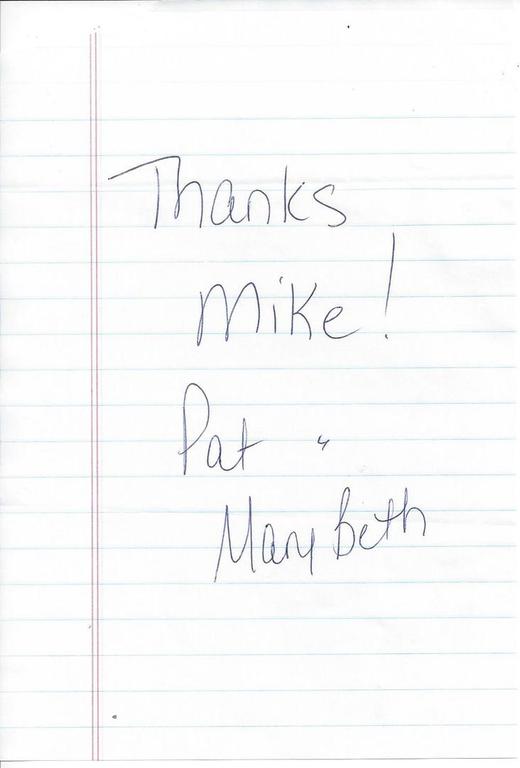 Thanks
Mike!
Pat "
Mary Beth